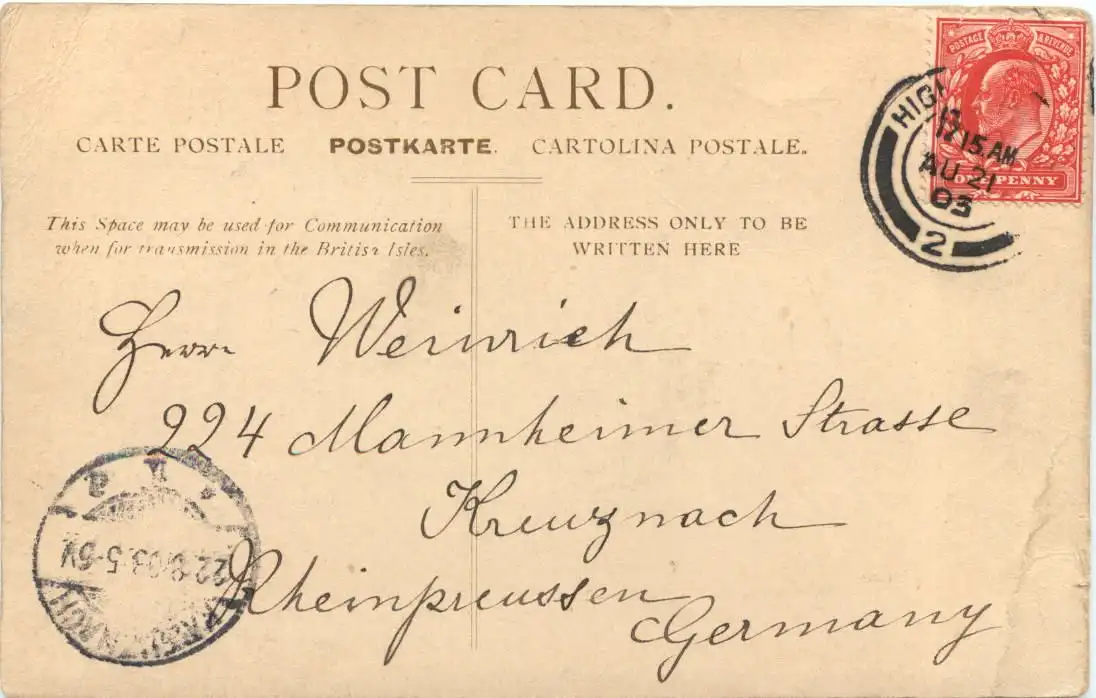 POST CARD.
CARTE POSTALE POSTKARTE. CARTOLINA POSTALE.
This Space may be used for Communication
when for transmission in the British Isles.
THE ADDRESS ONLY TO BE
WRITTEN HERE
POSTAGE & REVENUE
ONE PENNY
12.15.AM
AU 21
03
2
Herrn Weinrich
224 Mannheimer Strasse
Kreuznach
Rheinpreussen
Germany
22.8.03.5-6V
KREUZNACH